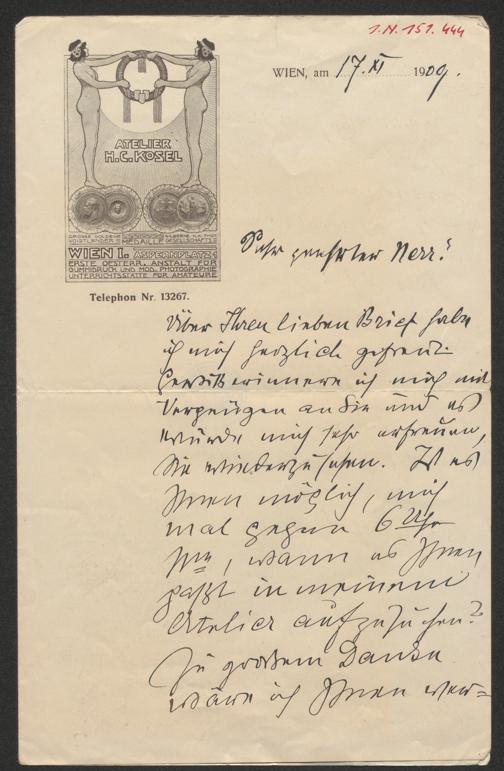 I.N. 151.444
WIEN, am 17. XI 1909.
ATELIER
H.C. KOSEL
GROSSE GOLDENE
VOIGTLÄNDER
MEDAILLE
WIEN I. ASPERNPLATZ
ERSTE OESTERR. ANSTALT FÜR
GUMMIDRUCK UND MOD. PHOTOGRAPHIE
UNTERRICHTSSTÄTTE FÜR AMATEURE
Telephon Nr. 13267.
Sehr geehrter Herr!
Über Ihren lieben Brief habe
ich mich herzlich gefreut.
Gewiß erinnere ich mich mit
Vergnügen an Sie und es
würde mich sehr erfreuen,
Sie wiederzusehen. Ist es
Ihnen möglich, mich
mal gegen 6 Uhr
, wann es Ihnen
paßt in meinem
Atelier aufzusuchen?
Zu großem Danke
wäre ich Ihnen ver=